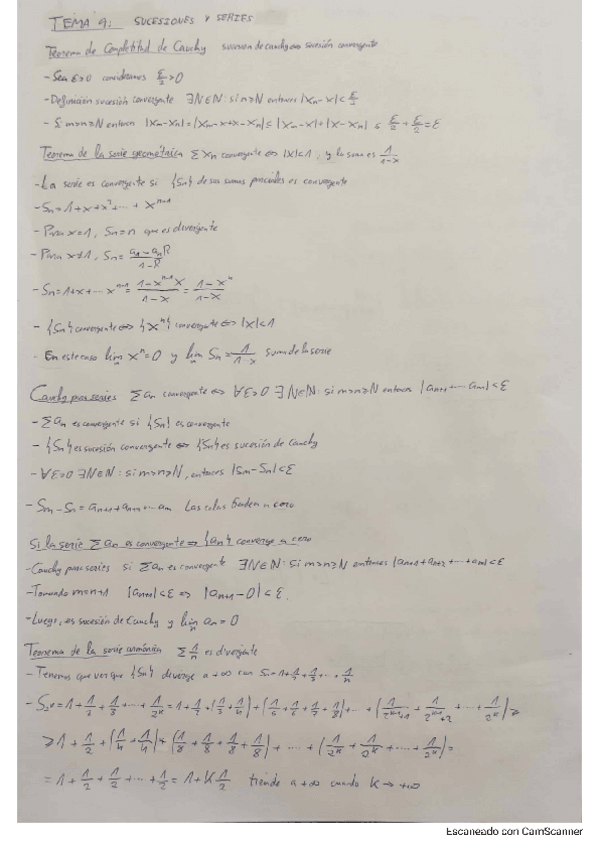 TEMA 9: SUCESIONES Y SERIES
Teorema de Completitud de Cauchy sucesión de cauchy ⇔ sucesión convergente
- Sea ε>0 consideramos ε/2>0
- Definición sucesión convergente ∃N∈N: si n≥N entonces |Xn-x|<ε/2
- Si m>n≥N entonces |Xm-Xn|=|Xm-x+x-Xn|≤|Xm-x|+|x-Xn|≤ ε/2+ε/2=ε
Teorema de la serie geométrica Σxn convergente ⇔ |x|<1; y la suma es 1/1-x
- La serie es convergente si {Sn} de sus sumas parciales es convergente
- Sn=1+x+x²+...+x^n-1
- Para x=1, Sn=n que es divergente
- Para x≠1, Sn= a1-anR/1-R
- Sn=1+x+...x^n-1 = 1-x^n-1x/1-x = 1-x^n/1-x
- {Sn} convergente ⇔ {x^n} convergente ⇔ |x|<1
- En este caso lim x^n=0 y lim Sn= 1/1-x suma de la serie
Cauchy para series Σan convergente ⇔ ∀ε>0 ∃N∈N: si m>n≥N entonces |an+1+...am|<ε
- Σan es convergente si {Sn} es convergente
- {Sn} es sucesión convergente ⇔ {Sn} es sucesión de Cauchy
- ∀ε>0 ∃N∈N: si m>n≥N, entonces |Sm-Sn|<ε
- Sm-Sn=an+1+an+2...am Las colas tienden a cero
Si la serie Σan es convergente ⇒ {an} converge a cero
- Cauchy para series si Σan es convergente ∃N∈N: si m>n≥N entonces |an+1+an+2+...+am|<ε
- Tomando m=n+1 |an+1|<ε ⇒ |an+1-0|<ε.
- Luego, es sucesión de Cauchy y lim an=0
Teorema de la serie armónica Σ1/n es divergente
- Tenemos que ver que {Sn} diverge a +∞ con Sn=1+1/2+1/3+...+1/n
- S2^k=1+1/2+1/3+...+1/2^k=1+1/2+(1/3+1/4)+(1/5+1/6+1/7+1/8)+...+(1/2^k-1+1 + 1/2^k-1+2 +...+1/2^k)≥
≥1+1/2+(1/4+1/4)+(1/8+1/8+1/8+1/8)+...+(1/2^k+1/2^k+...+1/2^k)=
=1+1/2+1/2+...+1/2=1+k1/2 tiende a +∞ cuando k→+∞
Escaneado con CamScanner